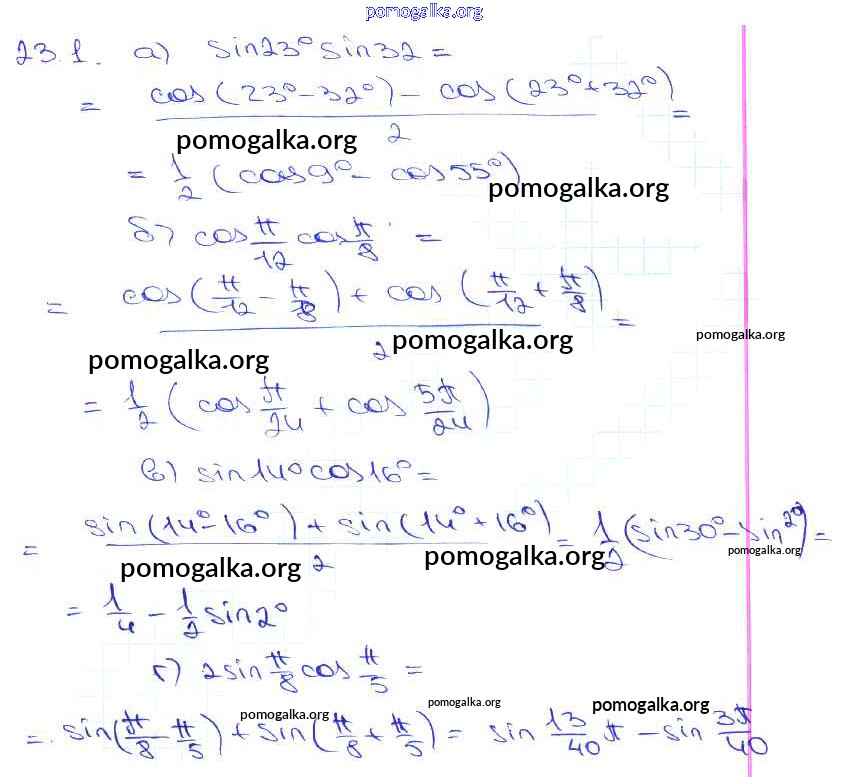 pomogalka.org
23.1. а) sin23° sin32 =
= (cos(23°-32°) - cos(23°+32°))/2 =
pomogalka.org
= 1/2 (cos9° - cos55°)
pomogalka.org
б) cos π/12 cos π/8 =
= (cos(π/12 - π/8) + cos(π/12 + π/8))/2 =
pomogalka.org
pomogalka.org
pomogalka.org
= 1/2 (cos π/24 + cos 5π/24)
в) sin14° cos16° =
= (sin(14°-16°) + sin(14°+16°))/2 = 1/2 (sin30° - sin2°) =
pomogalka.org
pomogalka.org
pomogalka.org
= 1/4 - 1/2 sin2°
г) 2sin π/8 cos π/5 =
pomogalka.org
pomogalka.org
pomogalka.org
= sin(π/8 - π/5) + sin(π/8 + π/5) = sin 13/40 π - sin 3π/40